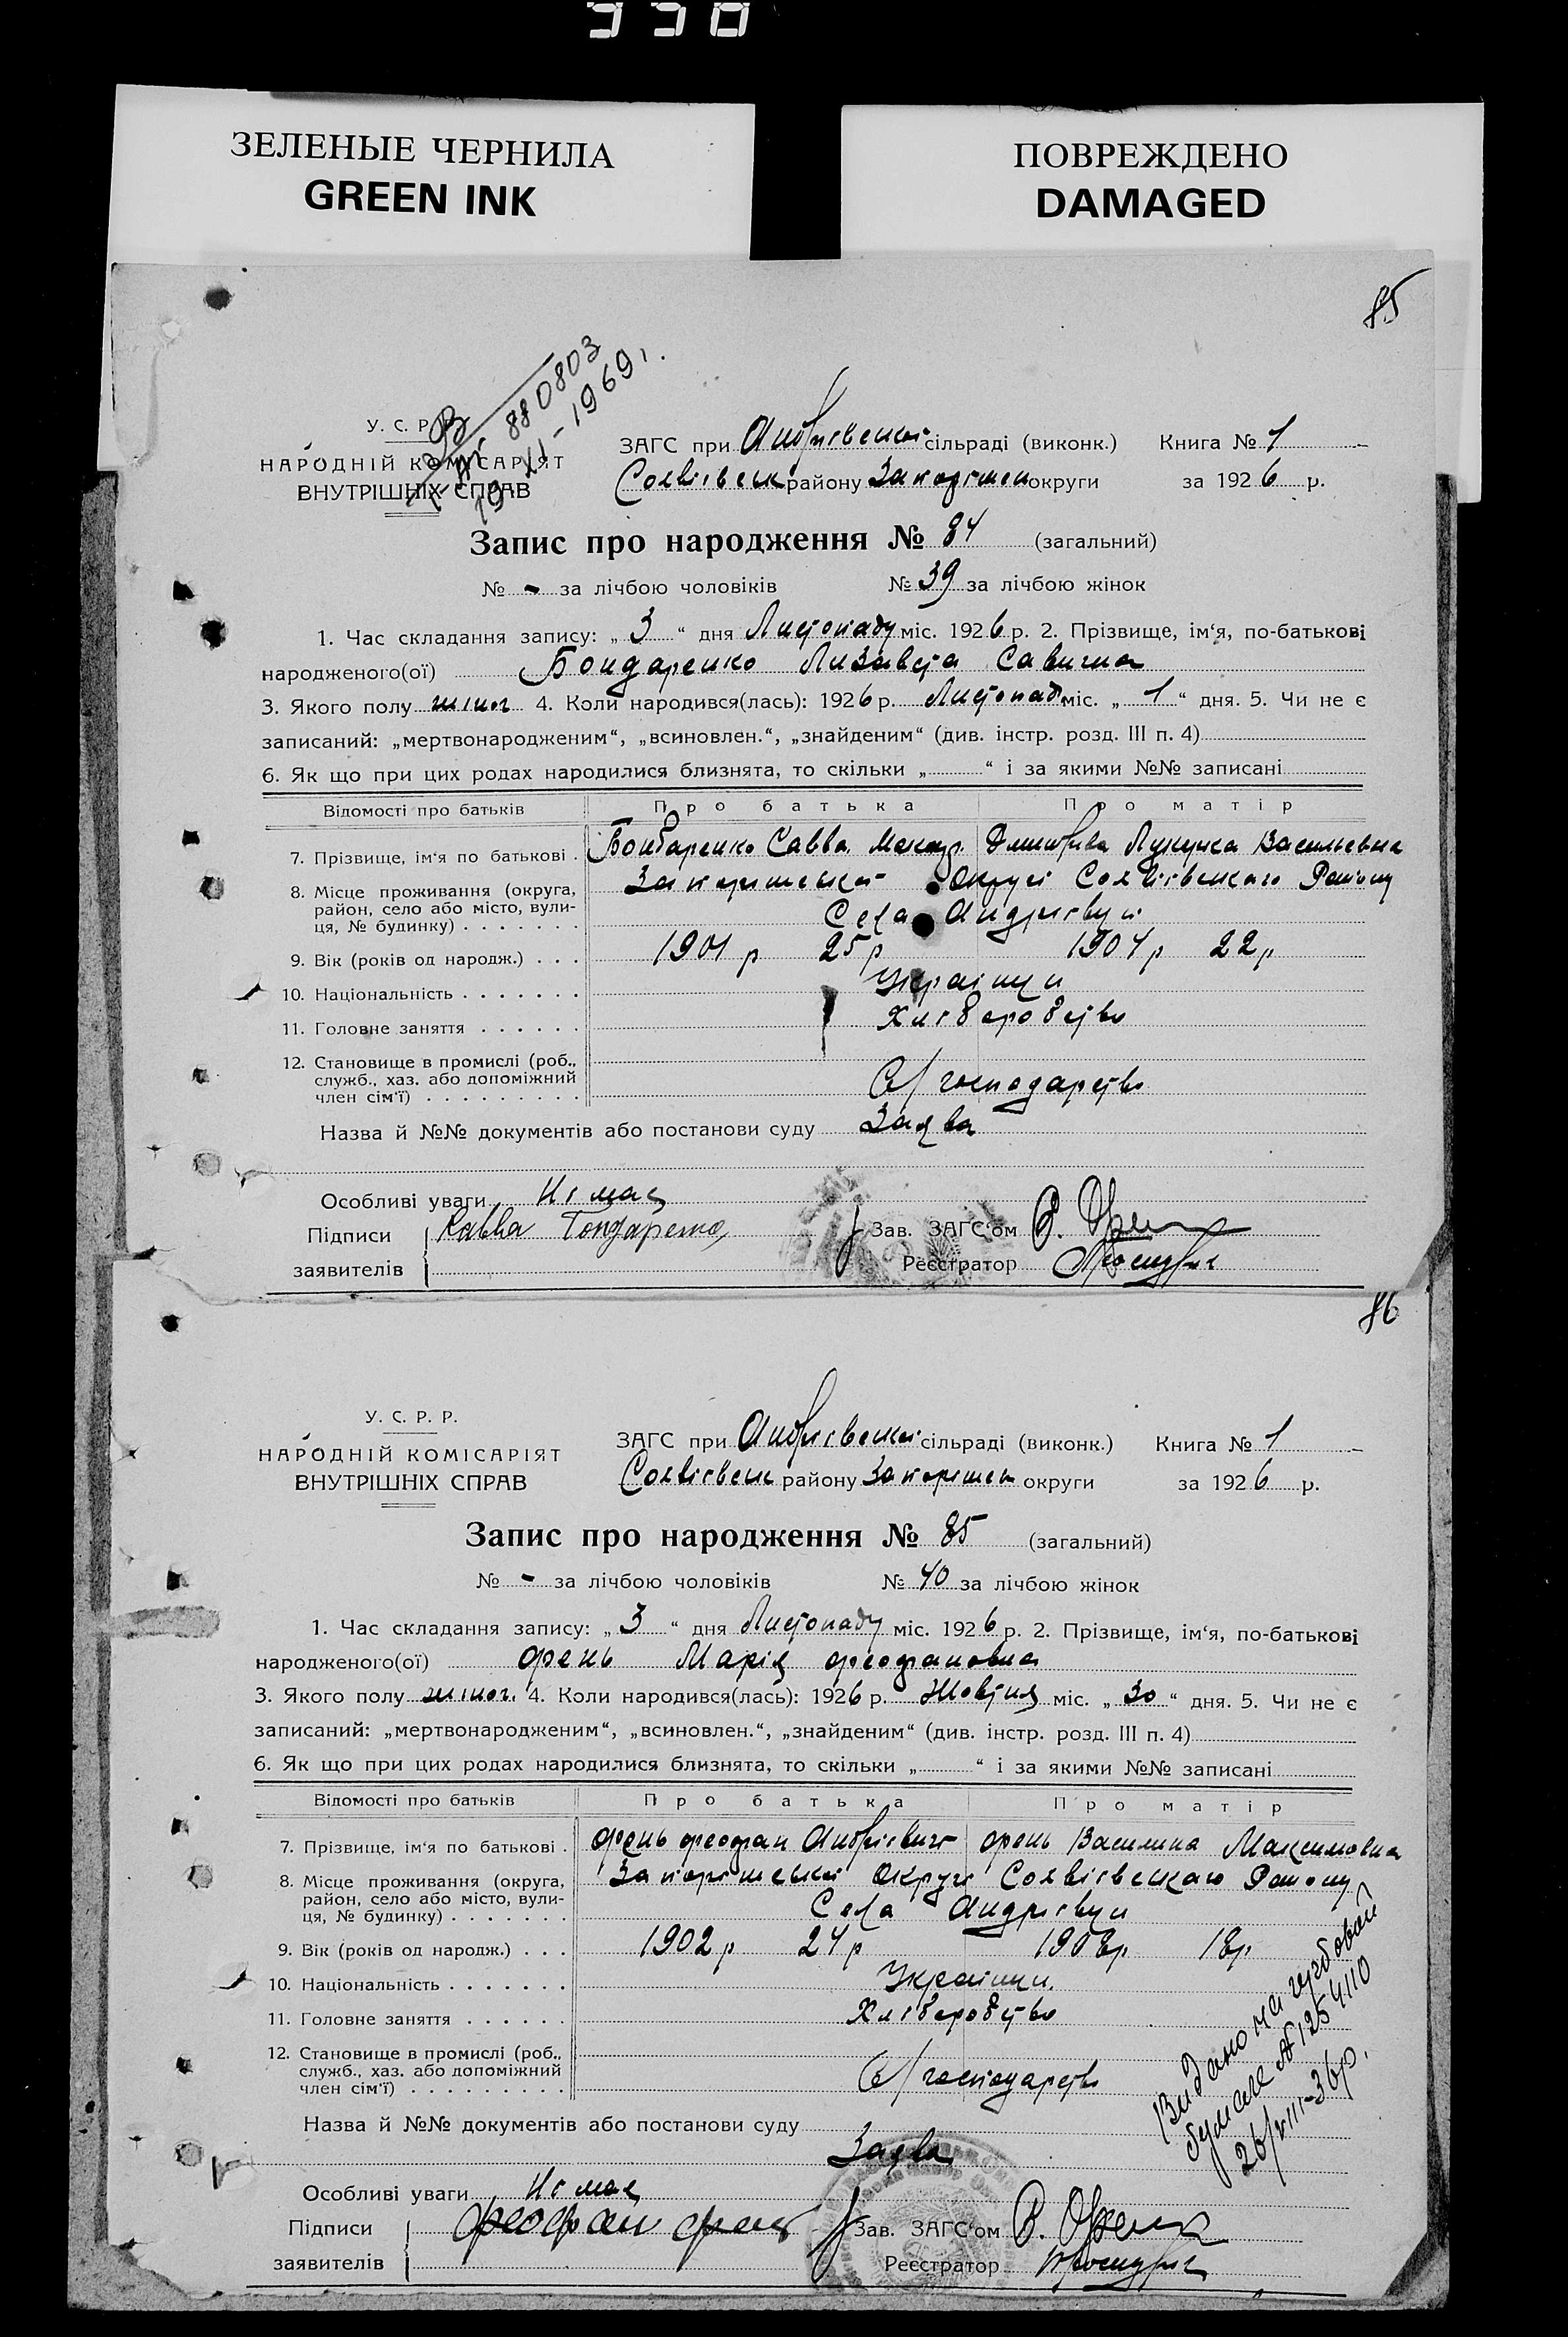 330
ЗЕЛЕНЫЕ ЧЕРНИЛА
GREEN INK
ПОВРЕЖДЕНО
DAMAGED
85
880803
1969 г.
У. С. Р. Р.
НАРОДНІЙ КОМІСАРІЯТ
ВНУТРІШНІХ СПРАВ
ЗАГС при Андріівській сільраді (виконк.) Книга № 1
Софіівськ району Запоріжськ округи за 1926 р.
Запис про народження № 84 (загальний)
№ - за лічбою чоловіків № 39 за лічбою жінок
1. Час складання запису: „ 3 “ дня Листопаду міс. 1926 р. 2. Прізвище, ім‘я, по-батькові
народженого(ої) Бондаренко Лизавета Савична
3. Якого полу жіноч 4. Коли народився(лась): 1926 р. Листопад міс. „ 1 “ дня. 5. Чи не є
записаний: „мертвонародженим“, „всиновлен.“, „знайденим“ (див. інстр. розд. III п. 4)
6. Як що при цих родах народилися близнята, то скільки „ “ і за якими №№ записані
Відомості про батьків Про батька Про матір
7. Прізвище, ім‘я по батькові . Бондаренко Савва Васильевна
8. Місце проживання (округа, Запоріжської Округи Софіівського Району
район, село або місто, вули- Села Андріівки
ця, № будинку)
9. Вік (років од народж.) 1901 р 25 р 1904 р 22 р
10. Національність Українци
11. Головне заняття Хліборобство
12. Становище в промислі (роб.,
служб., хаз. або допоміжний С/господарство
член сім‘ї)
Назва й №№ документів або постанови суду Заява
Особливі уваги Німає
Підписи Савва Бондаренко Зав. ЗАГС‘ом
заявителів Реєстратор
86
У. С. Р. Р.
НАРОДНІЙ КОМІСАРІЯТ
ВНУТРІШНІХ СПРАВ
ЗАГС при Андріівській сільраді (виконк.) Книга № 1
Софіівськ району Запоріжськ округи за 1926 р.
Запис про народження № 85 (загальний)
№ - за лічбою чоловіків № 40 за лічбою жінок
1. Час складання запису: „ 3 “ дня Листопаду міс. 1926 р. 2. Прізвище, ім‘я, по-батькові
народженого(ої) Фень Марія Феофановна
3. Якого полу жіноч. 4. Коли народився(лась): 1926 р. Жовтня міс. „ 30 “ дня. 5. Чи не є
записаний: „мертвонародженим“, „всиновлен.“, „знайденим“ (див. інстр. розд. III п. 4)
6. Як що при цих родах народилися близнята, то скільки „ “ і за якими №№ записані
Відомості про батьків Про батька Про матір
7. Прізвище, ім‘я по батькові . Фень Феофан Андрієвич Фень Василина Максимовна
8. Місце проживання (округа, Запоріжської Округи Софіівського Району
район, село або місто, вули- Села Андріівки
ця, № будинку)
9. Вік (років од народж.) 1902 р 24 р 1908 р 18 р
10. Національність Українци
11. Головне заняття Хліборобство
12. Становище в промислі (роб.,
служб., хаз. або допоміжний С/господарство
член сім‘ї)
Видано на гербовой
бумаге № 1254110
26/VIII-36 р.
Назва й №№ документів або постанови суду
Заява
Особливі уваги Німає
Підписи Феофан Фень Зав. ЗАГС‘ом
заявителів Реєстратор